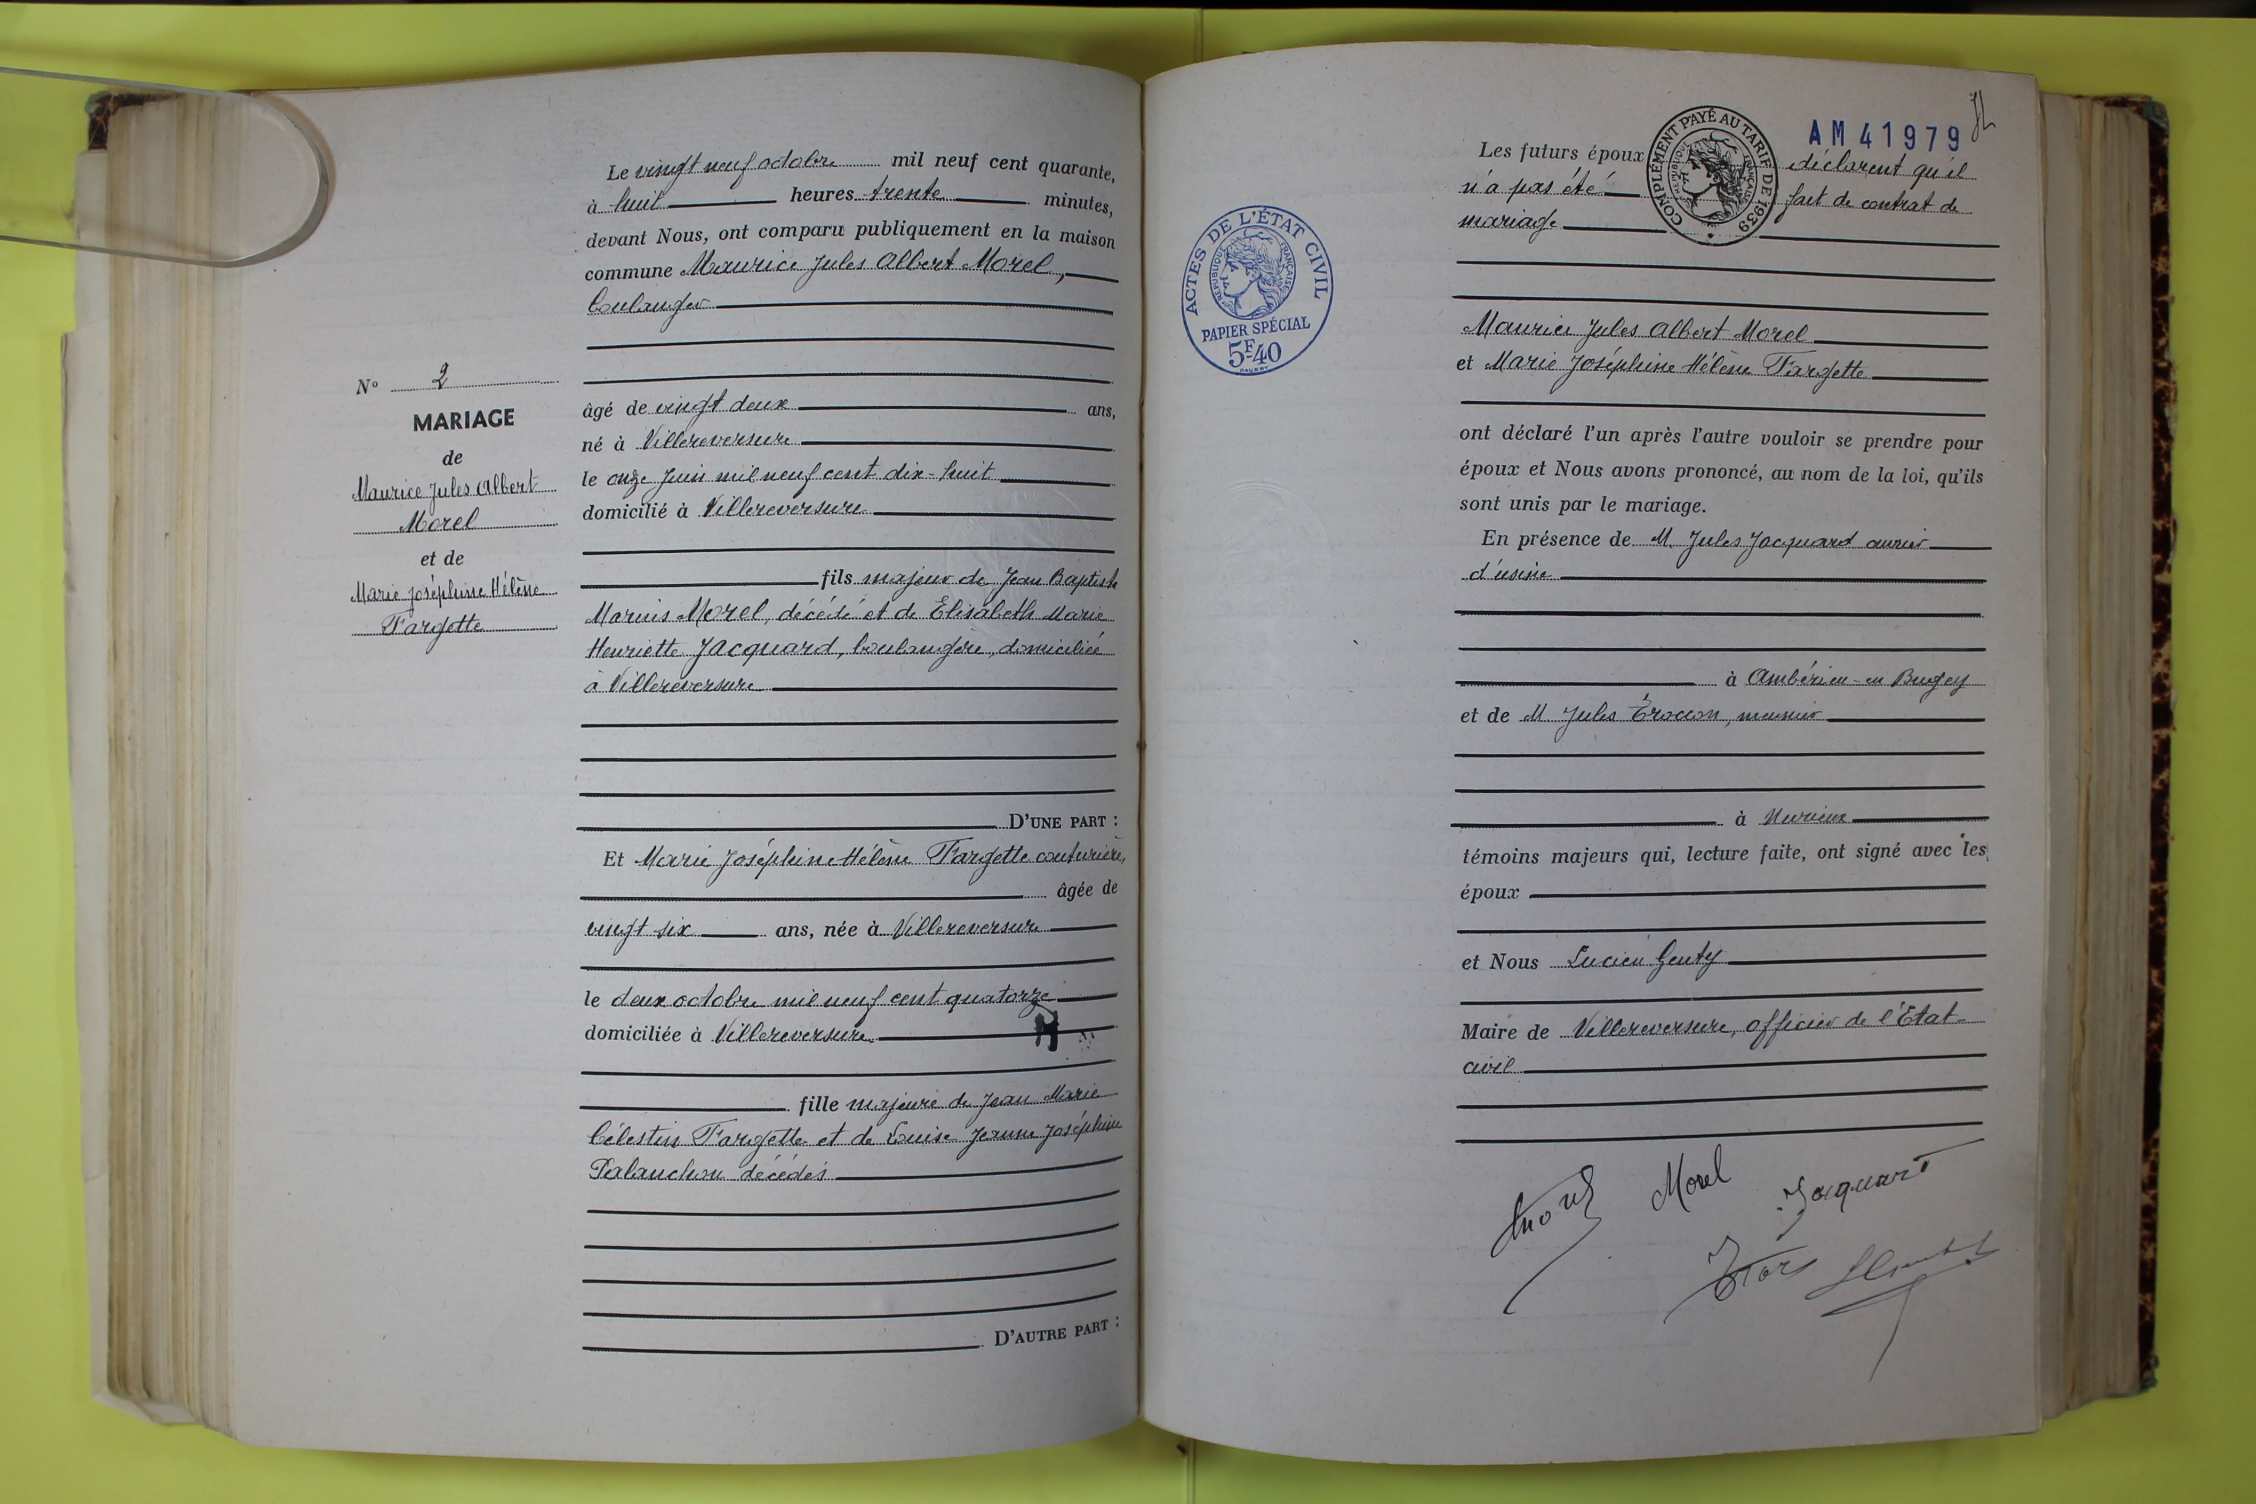 Le vingt neuf octobre mil neuf cent quarante,
à huit heures trente minutes,
devant Nous, ont comparu publiquement en la maison
commune Maurice Jules Albert Morel,
boulanger
N° 2
MARIAGE
de
Maurice Jules Albert
Morel
et de
Marie Joséphine Hélène
Fargette
âgé de vingt deux ans,
né à Villereversure
le onze Juin mil neuf cent dix-huit
domicilié à Villereversure
fils majeur de Jean Baptiste
Marius Morel, décédé et de Elisabeth Marie
Henriette Jacquard, boulangère, domiciliée
à Villereversure
D'UNE PART :
Et Marie Joséphine Hélène Fargette couturière,
âgée de
vingt six ans, née à Villereversure
le deux octobre mil neuf cent quatorze
domiciliée à Villereversure
fille majeure de Jean Marie
Célestin Fargette et de Louise Jeanne Joséphine
Palanchon décédés
D'AUTRE PART :
AM 41979
COMPLÉMENT PAYÉ AU TARIF DE 1939
RÉPUBLIQUE FRANÇAISE
ACTES DE L'ÉTAT CIVIL
RÉPUBLIQUE FRANÇAISE
PAPIER SPÉCIAL
5F40
Les futurs époux déclarent qu'il
n'a pas été fait de contrat de
mariage
Maurice Jules Albert Morel
et Marie Joséphine Hélène Fargette
ont déclaré l'un après l'autre vouloir se prendre pour
époux et Nous avons prononcé, au nom de la loi, qu'ils
sont unis par le mariage.
En présence de M. Jules Jacquard ouvrier
d'usine
à Ambérieu-en Bugey
et de M. Jules meunier
à Nurieux
témoins majeurs qui, lecture faite, ont signé avec les
époux
et Nous Lucien Genty
Maire de Villereversure, officier de l'Etat-
civil
Morel
Jacquard